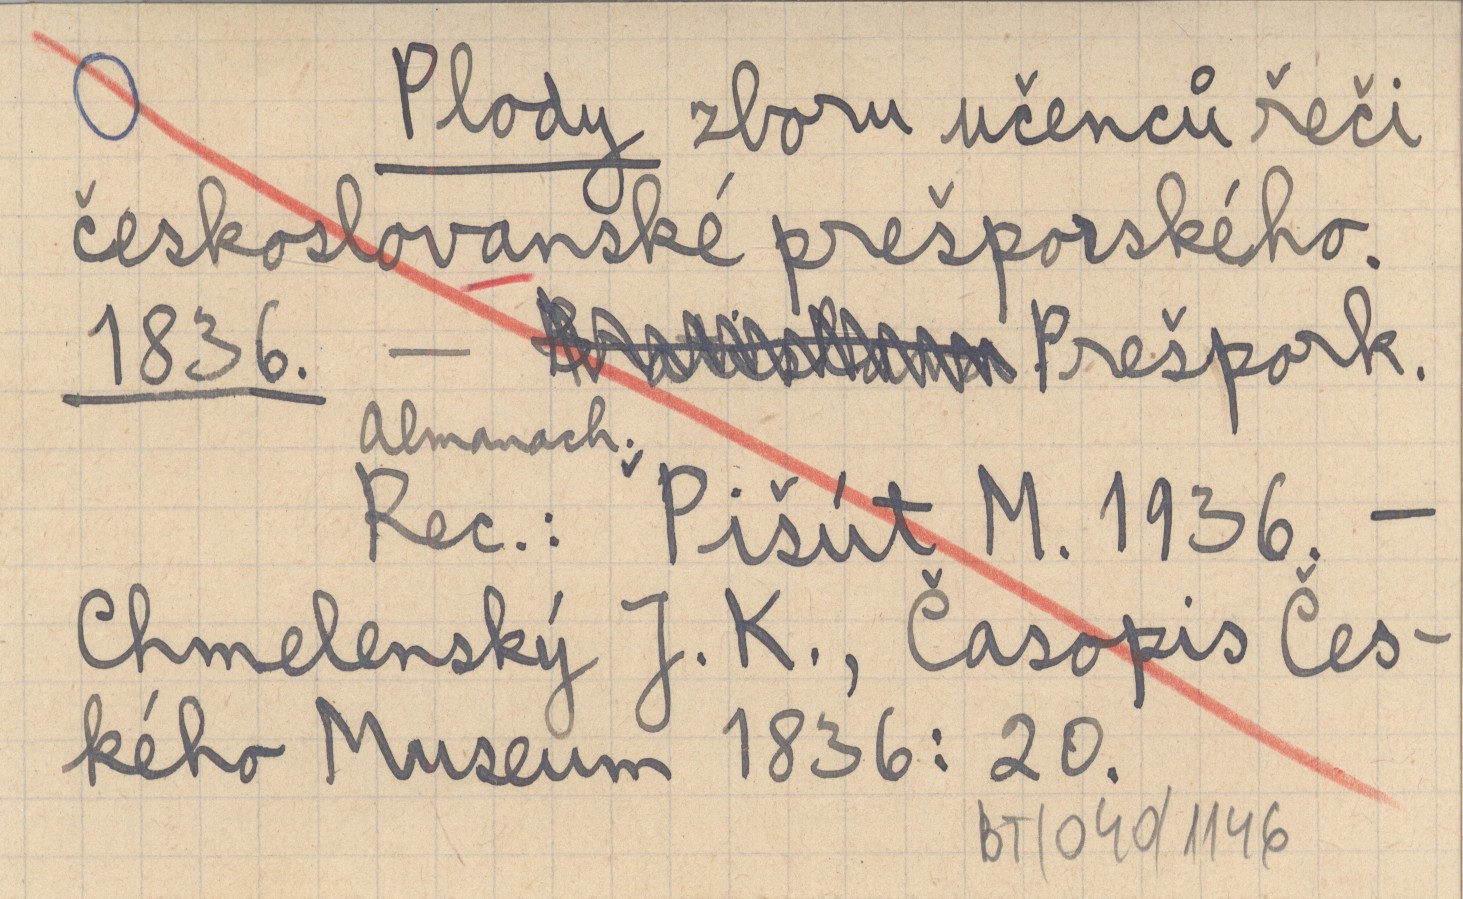 Plody zboru učenců řeči
československé prešporského.
1836. — Prešpork.
Almanach.
Rec.: Pišút M. 1936. —
Chmelenský J. K., Časopis Čes-
kého Museum 1836: 20.
BT/040/1146